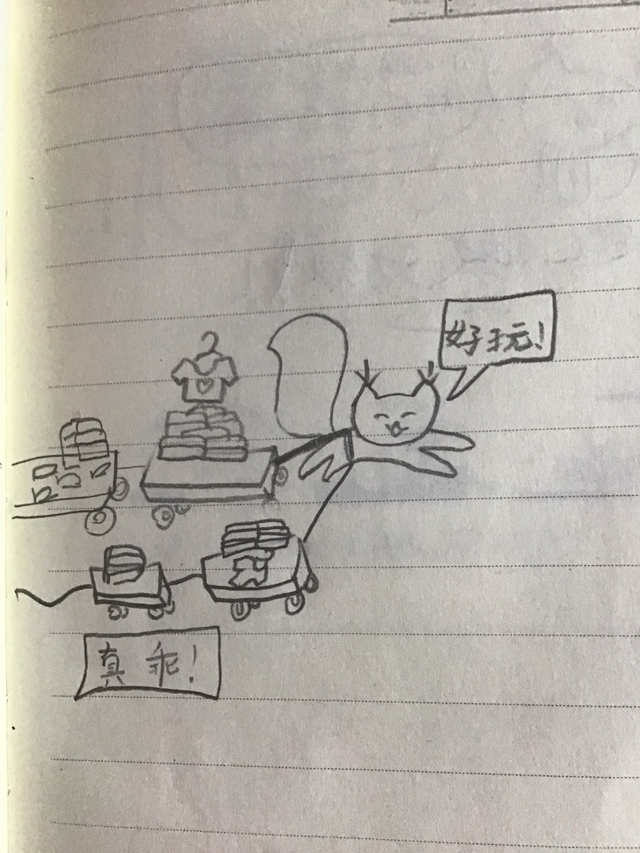 好玩!
真乖!